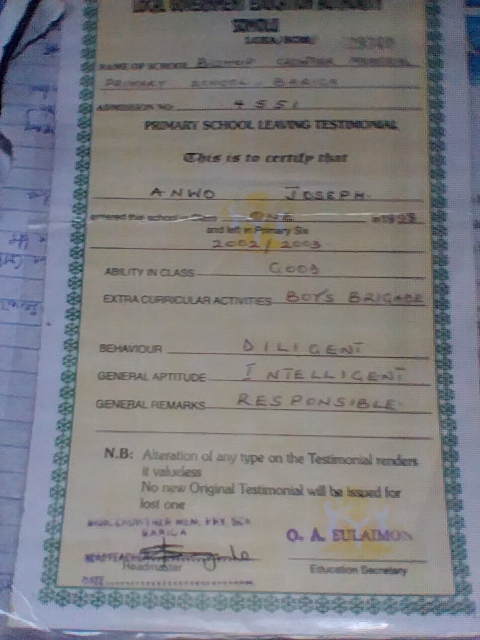 LOCAL GOVERNMENT EDUCATION AUTHORITY
SOMOLU
NAME OF SCHOOL BISHOP CROWTHER MEMORIAL
PRIMARY SCHOOL, BARIGA
ADMISSION NO 4551
PRIMARY SCHOOL LEAVING TESTIMONIAL
This is to certify that
ANWO JOSEPH
entered the school in Class ONE in 19
and left in Primary Six
2002/2003
ABILITY IN CLASS GOOD
EXTRA CURRICULAR ACTIVITIES BOYS BRIGADE
BEHAVIOUR DILIGENT
GENERAL APTITUDE INTELLIGENT
GENERAL REMARKS RESPONSIBLE
N.B: Alteration of any type on the Testimonial renders
it valueless
No new Original Testimonial will be issued for
lost one
CROWTHER MEM. PRY. SCH
BARIGA
O. A. EULAIMON
HEADTEACHER
Headmaster
Education Secretary
DATE